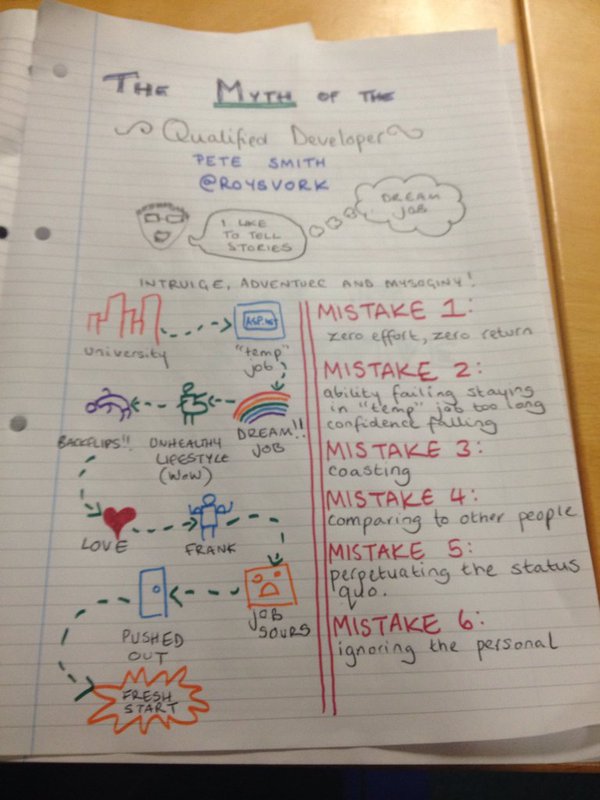 THE MYTH OF THE
Qualified Developer
PETE SMITH
@ROYSVORK
I LIKE
TO TELL
STORIES
DREAM
JOB
INTRUIGE, ADVENTURE AND MYSOGINY!
university
ASP.net
"temp"
job
DREAM!!
JOB
UNHEALTHY
LIFESTYLE
(WoW)
BACKFLIPS!!
LOVE
FRANK
JOB
SOURS
PUSHED
OUT
FRESH
START
MISTAKE 1:
zero effort, zero return
MISTAKE 2:
ability failing staying
in "temp" job too long
confidence falling
MISTAKE 3:
coasting
MISTAKE 4:
comparing to other people
MISTAKE 5:
perpetuating the status
quo.
MISTAKE 6:
ignoring the personal